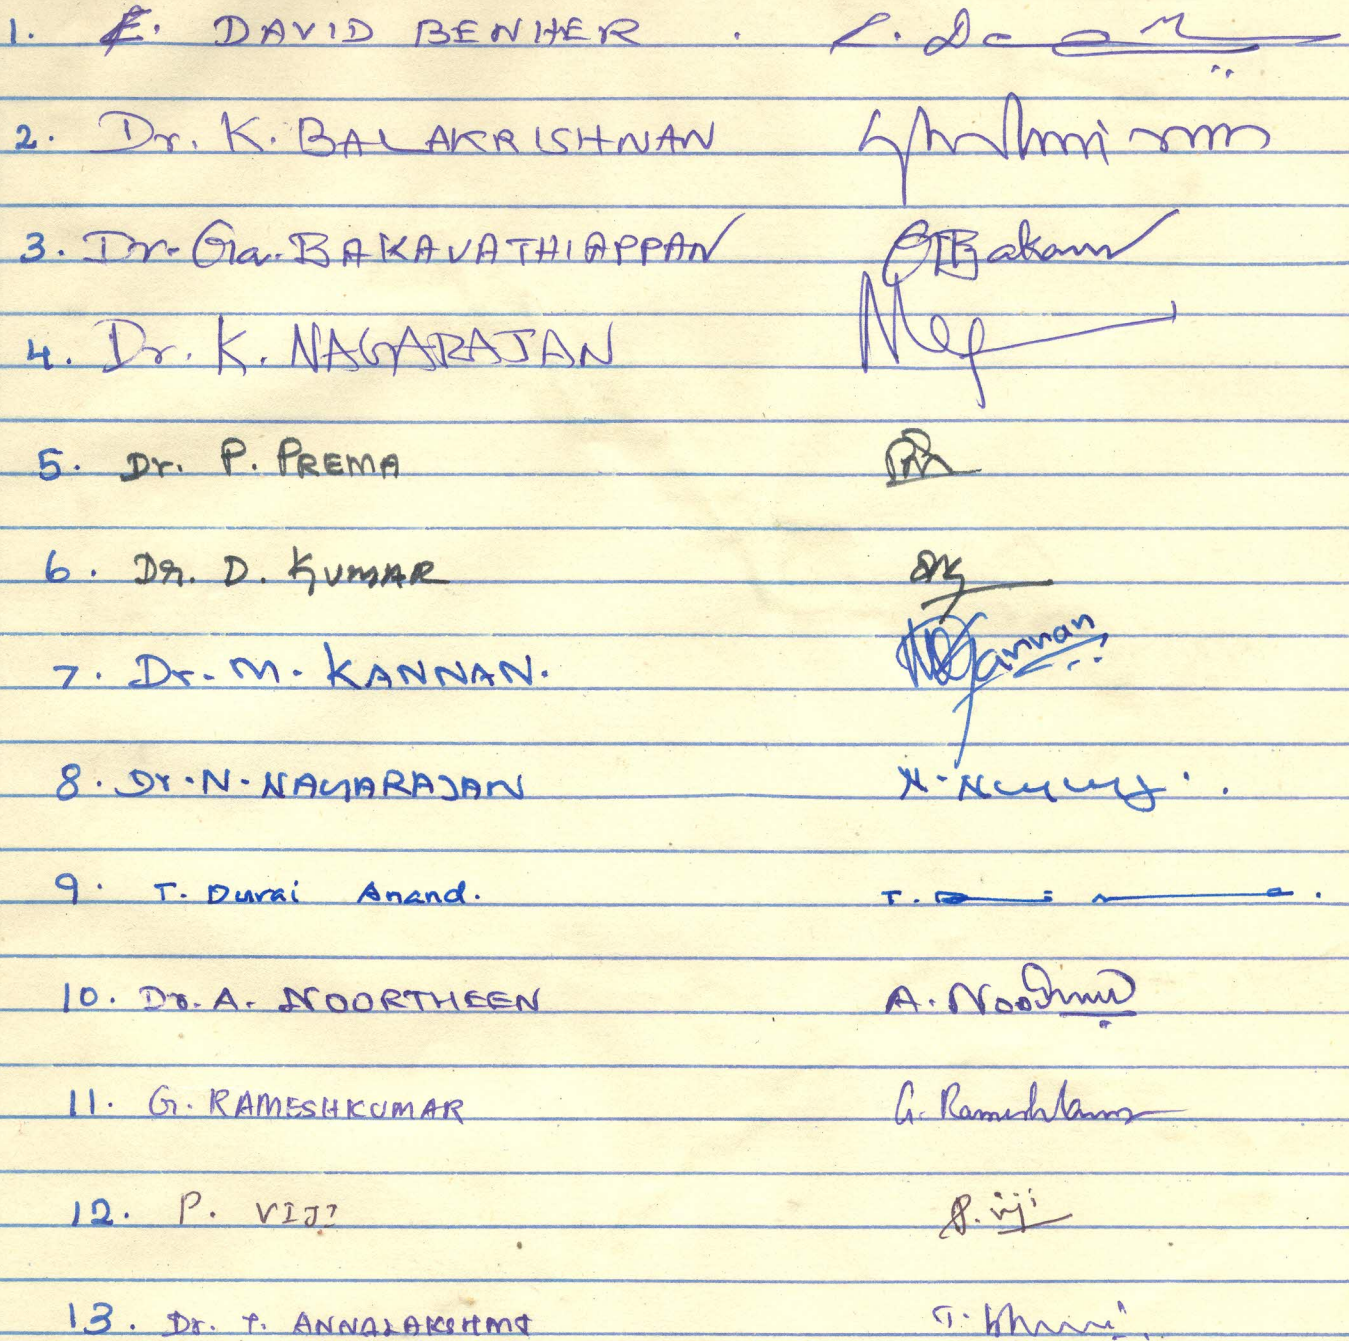 1. E. DAVID BENHER .
2. Dr. K. BALAKRISHNAN
3. Dr. Ga. BAKAVATHIAPPAN GBakav
4. Dr. K. NAGARAJAN
5. Dr. P. PREMA
6. Dr. D. KUMAR
7. Dr. M. KANNAN. Kannan
8. Dr. N. NAGARAJAN N.
9. T. Durai Anand. T.
10. Dr. A. NOORTHEEN A. Noo
11. G. RAMESHKUMAR G. Rameshkumar
12. P. VIJI P. Viji
13. Dr. T. ANNALAKSHMI T.